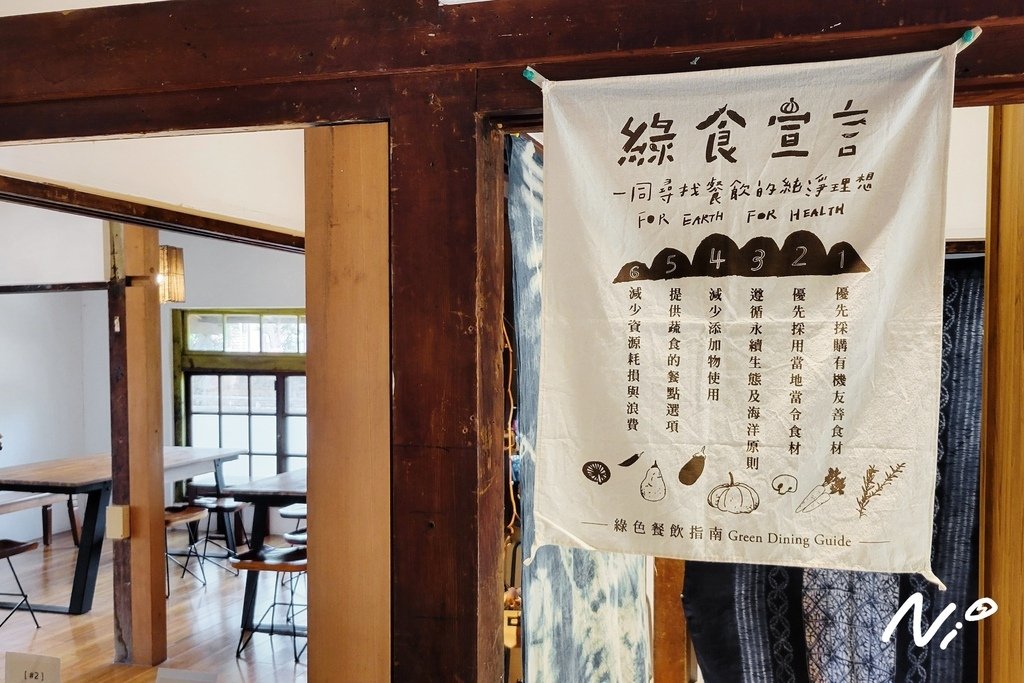 綠食宣言
一同尋找餐飲的純淨理想
FOR EARTH FOR HEALTH
1
優先採購有機友善食材
2
優先採用當地當令食材
3
遵循永續生態及海洋原則
4
減少添加物使用
5
提供蔬食的餐點選項
6
減少資源耗損與浪費
綠色餐飲指南 Green Dining Guide
[#2]
Ni